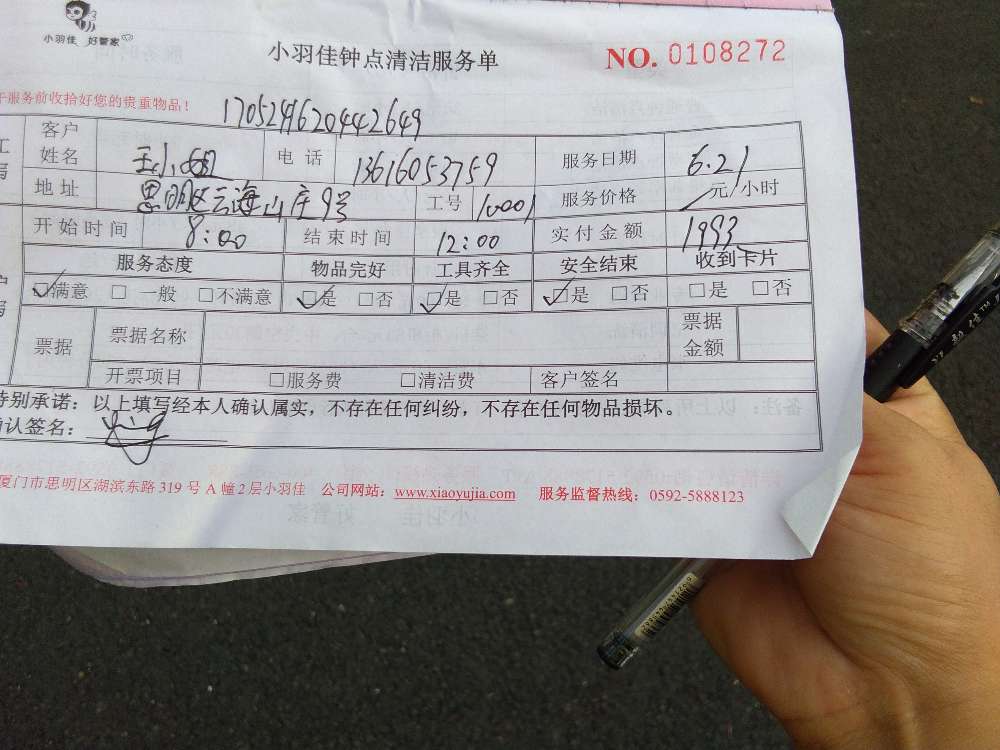 小羽佳 好管家
小羽佳钟点清洁服务单
NO. 0108272
服务前收拾好您的贵重物品！
17052496204442649
客户姓名 王小姐 电话 13616053759 服务日期 6.21
地址 思明区云海山庄9号 工号 10001 服务价格 元/小时
开始时间 8:00 结束时间 12:00 实付金额 1993
服务态度 物品完好 工具齐全 安全结束 收到卡片
☑满意 □一般 □不满意 ☑是 □否 ☑是 □否 ☑是 □否 □是 □否
票据 票据名称 票据金额
开票项目 □服务费 □清洁费 客户签名
特别承诺：以上填写经本人确认属实，不存在任何纠纷，不存在任何物品损坏。
确认签名：
厦门市思明区湖滨东路 319 号 A 幢 2 层小羽佳 公司网站：www.xiaoyujia.com 服务监督热线：0592-5888123